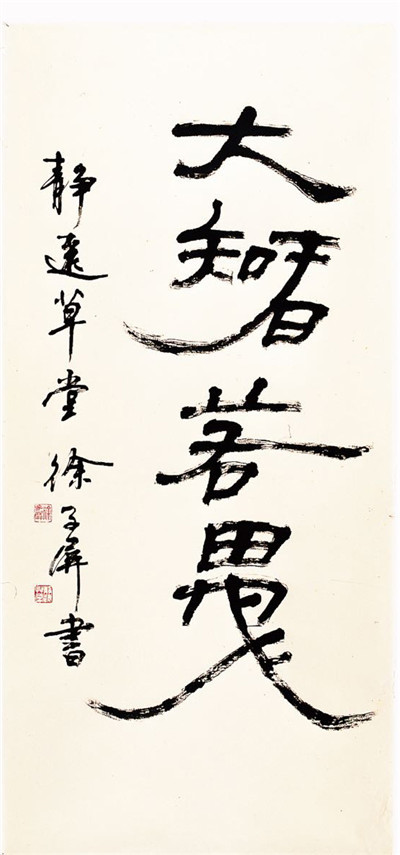 大智若愚
静遠草堂 徐子屏書